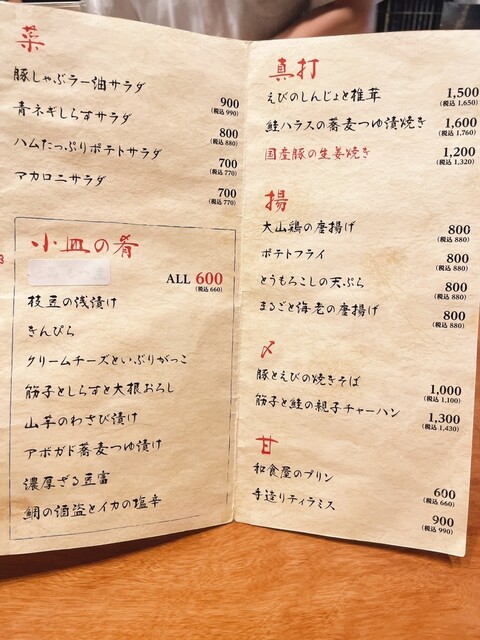 菜
豚しゃぶラー油サラダ
900
(税込 990)
青ネギしらすサラダ
800
(税込 880)
ハムたっぷりポテトサラダ
700
(税込 770)
マカロニサラダ
700
(税込 770)
小皿の肴
ALL 600
(税込 660)
枝豆の浅漬け
きんぴら
クリームチーズといぶりがっこ
筋子としらすと大根おろし
山芋のわさび漬け
アボガド蕎麦つゆ漬け
濃厚ざる豆富
鯛の酒盗とイカの塩辛
3
真打
えびのしんじょと椎茸
1,500
(税込 1,650)
鮭ハラスの蕎麦つゆ漬焼き
1,600
(税込 1,760)
国産豚の生姜焼き
1,200
(税込 1,320)
揚
大山鶏の唐揚げ
800
(税込 880)
ポテトフライ
800
(税込 880)
とうもろこしの天ぷら
800
(税込 880)
まるごと海老の唐揚げ
800
(税込 880)
〆
豚とえびの焼きそば
1,000
(税込 1,100)
筋子と鮭の親子チャーハン
1,300
(税込 1,430)
甘
和食屋のプリン
600
(税込 660)
手造りティラミス
900
(税込 990)